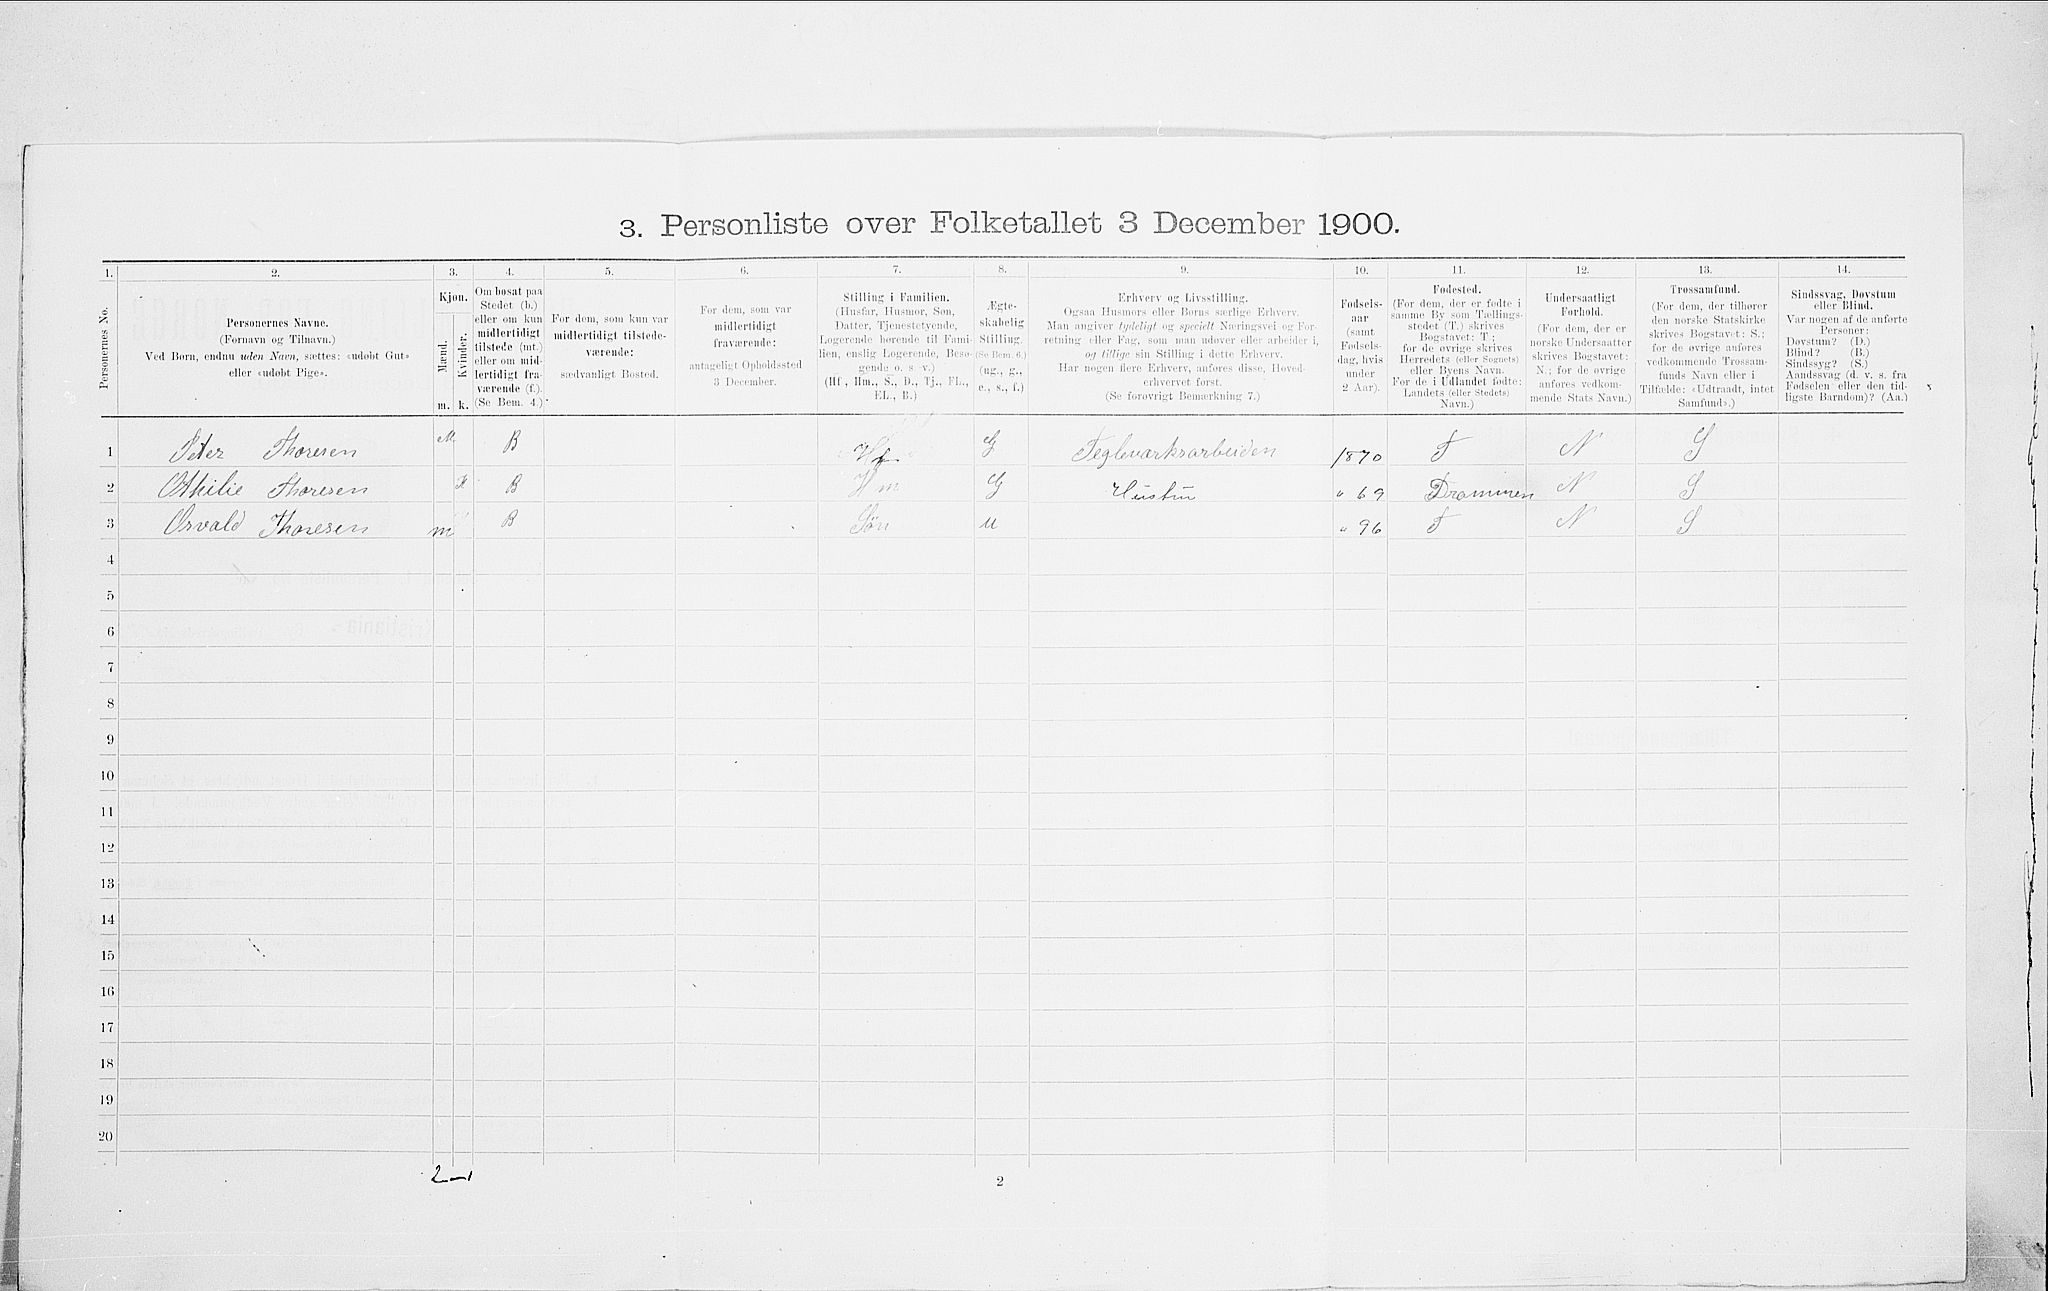 3. Personliste over Folketallet 3 December 1900.
1. 2. 3. 4. 5. 6. 7. 8. 9. 10. 11. 12. 13. 14.
Personernes No.
Personernes Navne.
(Fornavn og Tilnavn.)
Ved Børn, endnu uden Navn, sættes: «udøbt Gut»
eller «udøbt Pige».
Kjøn.
Mænd.
Kvinder.
m. k.
Om bosat paa
Stedet (b.)
eller om kun
midlertidigt
tilstede (mt.)
eller om mid-
lertidigt fra-
værende (f.).
(Se Bem. 4.)
For dem, som kun var
midlertidigt tilstede-
værende:
sædvanligt Bosted.
For dem, som var
midlertidigt
fraværende:
antageligt Opholdssted
3 December.
Stilling i Familien.
(Husfar, Husmor, Søn,
Datter, Tjenestetyende,
Logerende hørende til Fami-
lien, enslig Logerende, Besø-
gende o. s. v.)
(Hf., Hm., S., D., Tj., FL.,
EL., B.)
Ægte-
skabelig
Stilling.
(Se Bem. 6.)
(ug., g.,
e., s., f.)
Erhverv og Livsstilling.
Ogsaa Husmors eller Børns særlige Erhverv.
Man angiver tydeligt og specielt Næringsvei og For-
retning eller Fag, som man udøver eller arbeider i,
og tillige sin Stilling i dette Erhverv.
Har nogen flere Erhverv, anføres disse, Hoved-
erhvervet først.
(Se forøvrigt Bemærkning 7.)
Fødsels-
aar
(samt
Fødsels-
dag, hvis
under
2 Aar).
Fødested.
(For dem, der er fødte i
samme By som Tællings-
stedet (T.) skrives
Bogstavet: T;
for de øvrige skrives
Herredets (eller Sognets)
eller Byens Navn.
For de i Udlandet fødte:
Landets (eller Stedets)
Navn.)
Undersaatligt
Forhold.
(For dem, der er
norske Undersaatter
skrives Bogstavet:
N.; for de øvrige
anføres vedkom-
mende Stats Navn.)
Trossamfund.
(For dem, der tilhører
den norske Statskirke
skrives Bogstavet: S.;
for de øvrige anføres
vedkommende Trossam-
funds Navn eller i
Tilfælde: «Udtraadt, intet
Samfund».)
Sindssvag, Døvstum
eller Blind.
Var nogen af de anførte
Personer:
Døvstum? (D.)
Blind? (B.)
Sindssyg? (S.)
Aandssvag (d. v. s. fra
Fødselen eller den tid-
ligste Barndom)? (Aa.)
1 Peter Thoresen M B Hf G Teglværksarbeiden 1870 T N S
2 Othilie Thoresen K B Hm G Hustru " 69 Drammen N S
3 Osvald Thoresen m B Søn U " 96 T N S
4
5
6
7
8
9
10
11
12
13
14
15
16
17
18
19
20
2-1
2